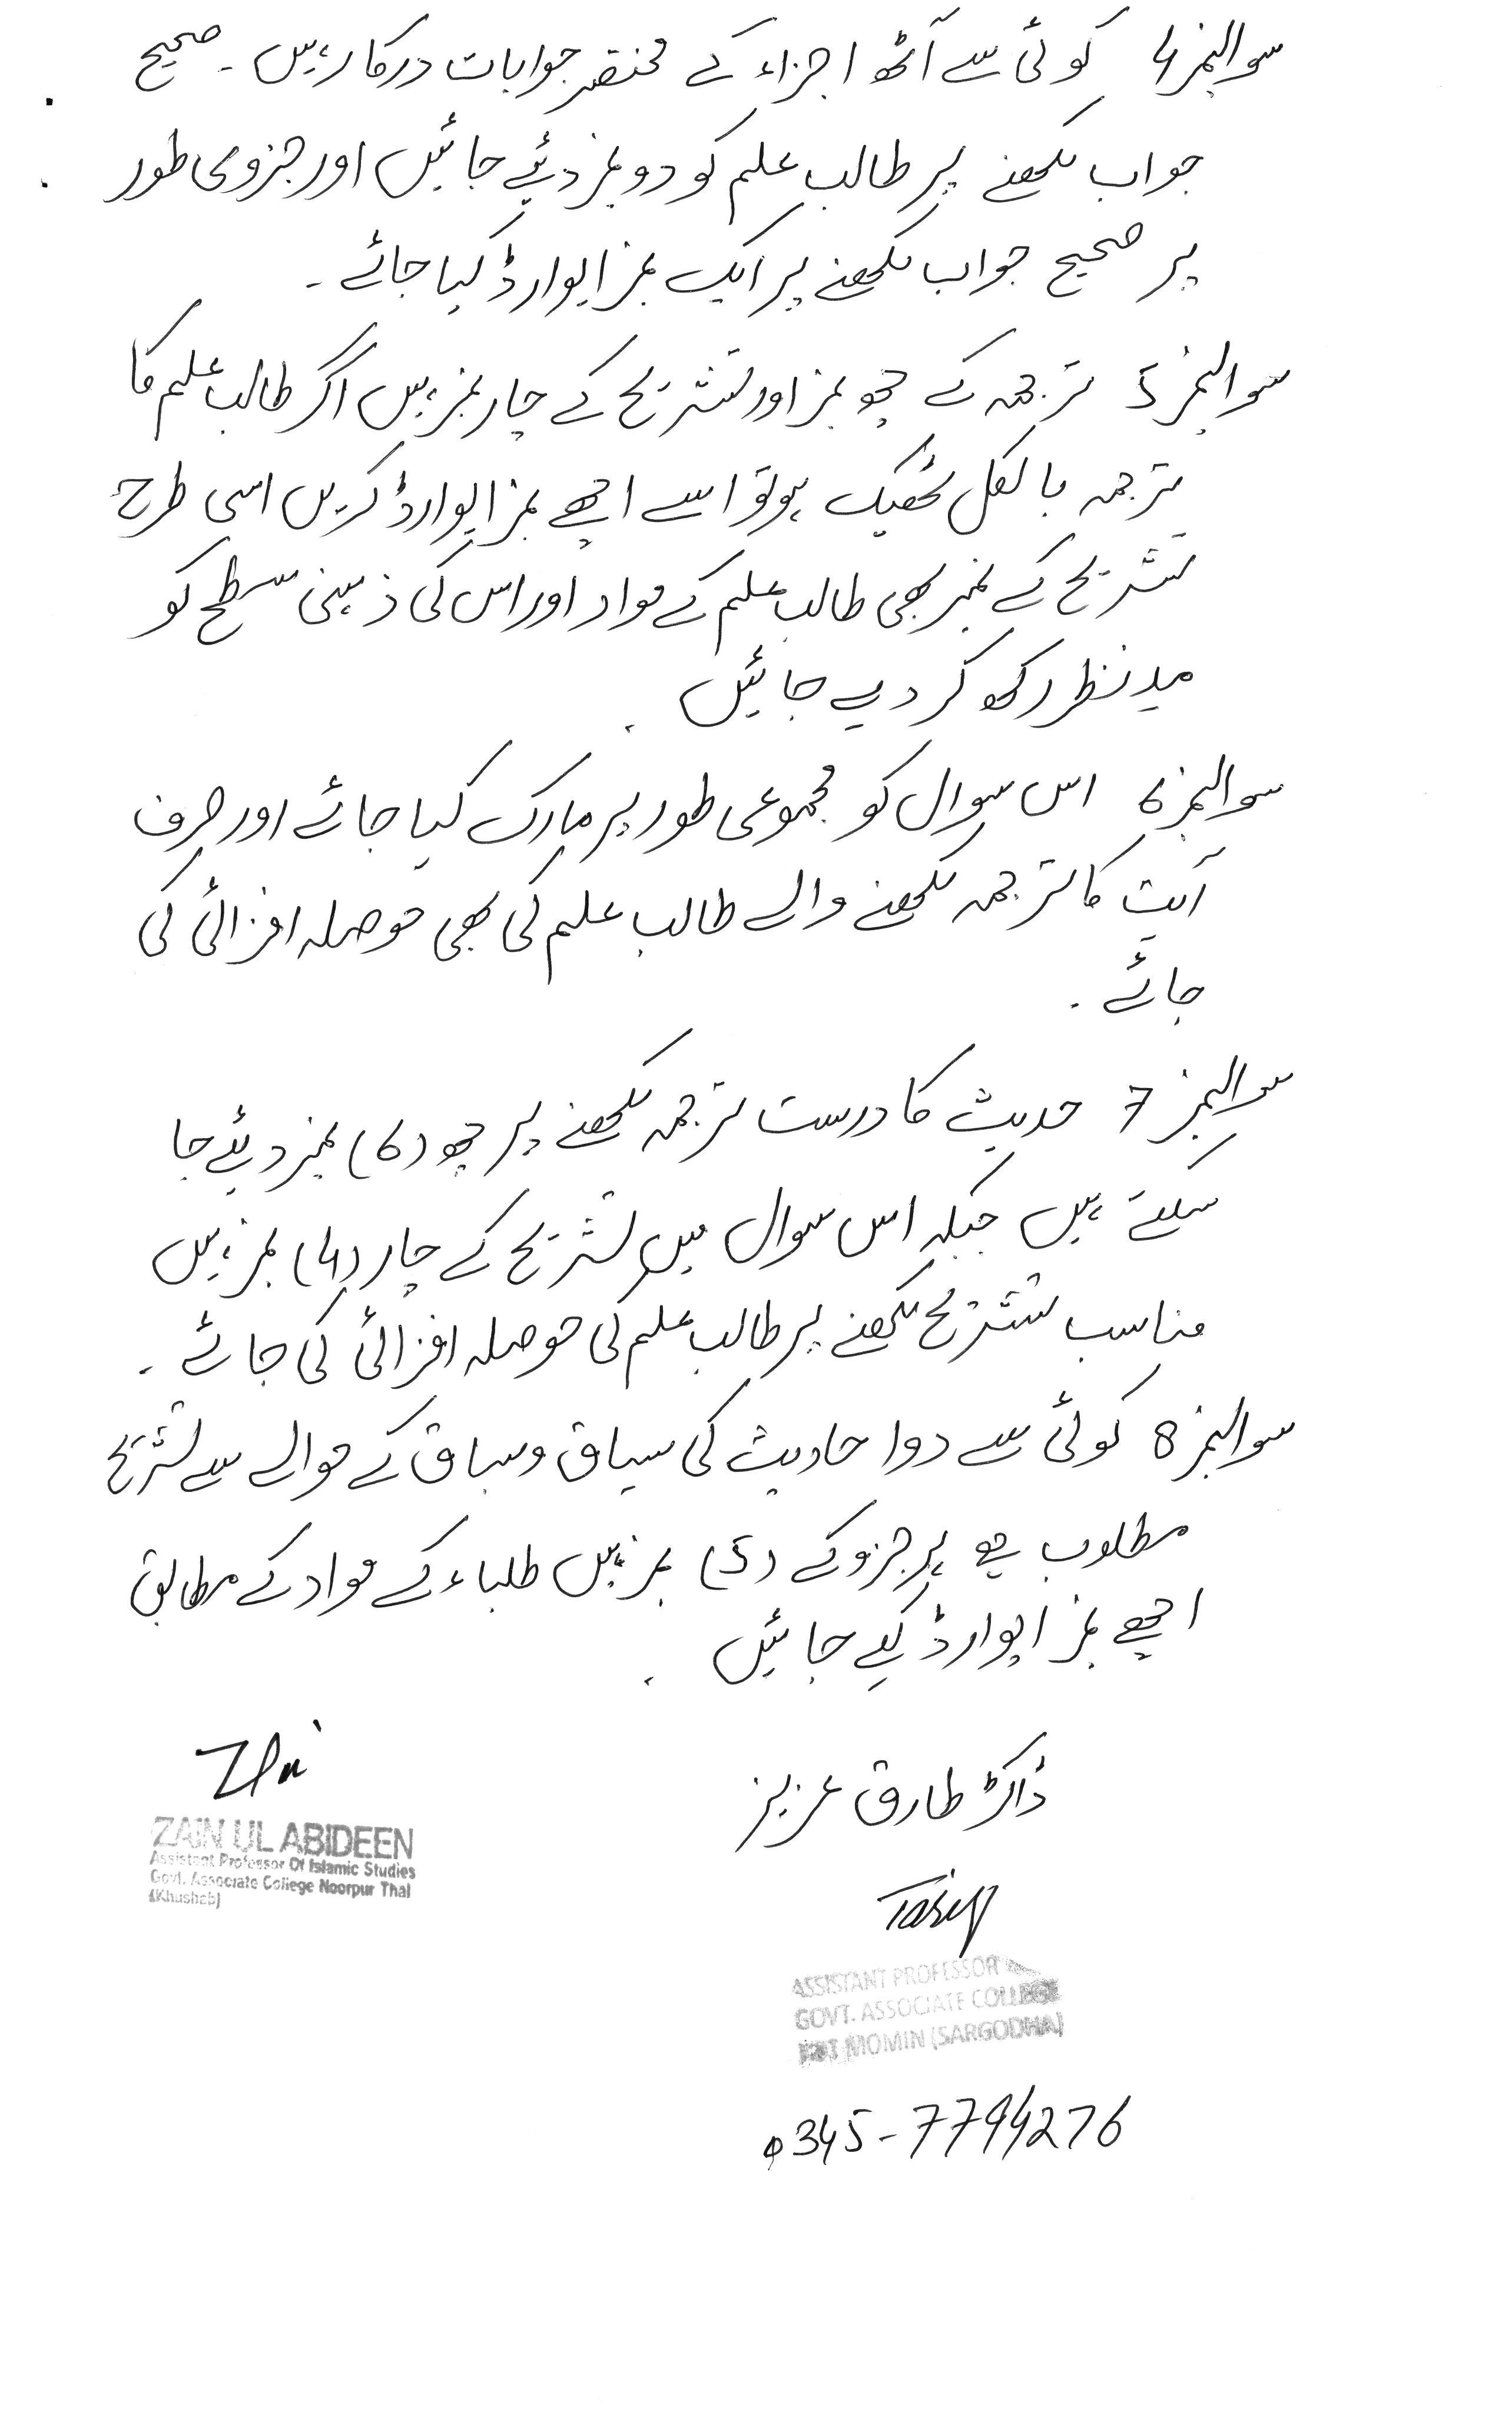 سوالنمبر 4 کوئی سے آٹھ اجزاء کے مختصر جوابات درکار ہیں۔ صحیح
جواب لکھنے پر طالب علم کو دو نمبر دئیے جائیں اور جزوی طور
پر صحیح جواب لکھنے پر ایک نمبر ایوارڈ کیا جائے۔
سوالنمبر 5 ترجمہ کے چھ نمبر اور تشریح کے چار نمبر ہیں اگر طالب علم کا
ترجمہ بالکل ٹھیک ہو تو اسے اچھے نمبر ایوارڈ کریں اسی طرح
تشریح کے نمبر بھی طالب علم کے مواد اور اس کی ذہنی سطح کو
مدنظر رکھ کر دیے جائیں۔
سوالنمبر 6 اس سوال کو مجموعی طور پر مارک کیا جائے اور صرف
آیت کا ترجمہ لکھنے والے طالب علم کی بھی حوصلہ افزائی کی
جائے۔
سوالنمبر 7 حدیث کا درست ترجمہ لکھنے پر چھ (6) نمبر دیئے جا
سکتے ہیں جبکہ اس سوال میں تشریح کے چار (4) نمبر ہیں
مناسب تشریح لکھنے پر طالب علم کی حوصلہ افزائی کی جائے۔
سوالنمبر 8 کوئی سے دو احادیث کی سیاق و سباق کے حوالے سے تشریح
مطلوب ہے ہر جزو کے (5) نمبر ہیں طلباء کے مواد کے مطابق
اچھے نمبر ایوارڈ کیے جائیں۔
ڈاکٹر طارق عزیز
ZAIN UL ABIDEEN
Assistant Professor Of Islamic Studies
Govt. Associate College Noorpur Thal
(Khushab)
Tariq
ASSISTANT PROFESSOR
GOVT. ASSOCIATE COLLEGE
KOT MOMIN (SARGODHA)
0345-7794276